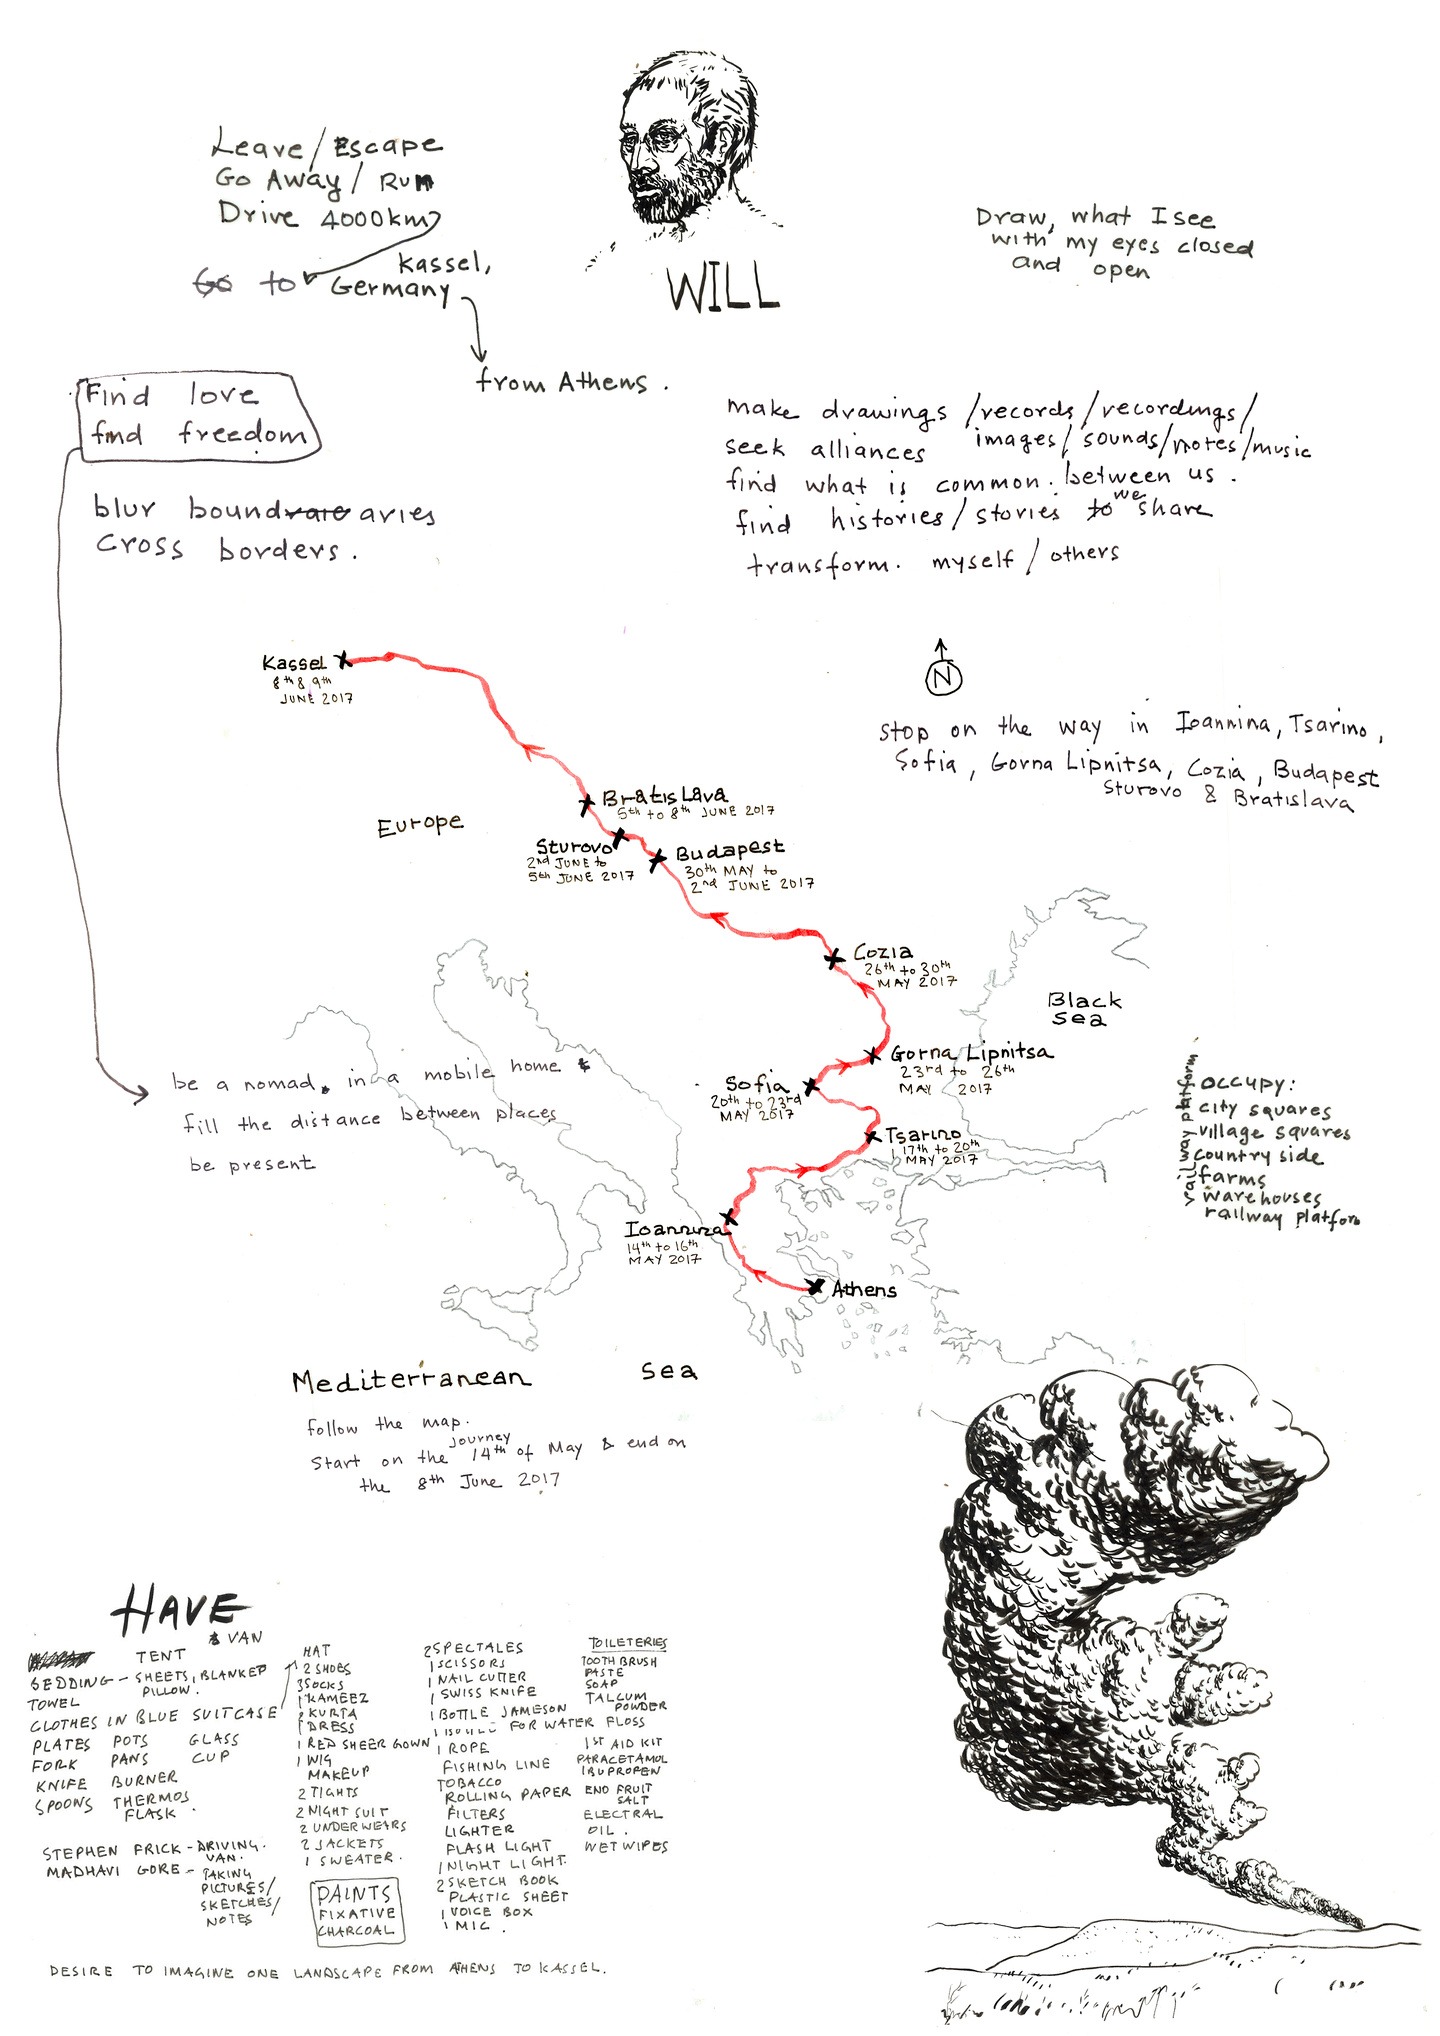 Leave/Escape
Go Away/Run
Drive 4000km
Go to Kassel,
Germany
from Athens.
WILL
Draw, what I see
with my eyes closed
and open
Find love
find freedom
blur boundaries
Cross borders.
make drawings /records/recordings/
images/ sounds/notes/music
seek alliances
find what is common. between us.
find histories/stories to we share
transform. myself/others
Kassel
8th & 9th
JUNE 2017
N
stop on the way in Ioannina, Tsarino,
Sofia, Gorna Lipnitsa, Cozia, Budapest
Sturovo & Bratislava
Bratislava
5th to 8th JUNE 2017
Europe
Sturovo
2nd JUNE to
5th JUNE 2017
Budapest
30th MAY to
2nd JUNE 2017
Cozia
26th to 30th
MAY 2017
Black
Sea
Gorna Lipnitsa
23rd to 26th
MAY 2017
Sofia
20th to 23rd
MAY 2017
Tsarino
17th to 20th
MAY 2017
Ioannina
14th to 16th
MAY 2017
Athens
be a nomad. in a mobile home &
fill the distance between places
be present
railway platform
OCCUPY:
city squares
village squares
country side
farms
warehouses
railway platform
Mediterranean Sea
follow the map.
journey
Start on the 14th of May & end on
the 8th June 2017
HAVE
& VAN
TENT
BEDDING - SHEETS, BLANKET
PILLOW.
TOWEL
CLOTHES IN BLUE SUITCASE
PLATES POTS GLASS
FORK PANS CUP
KNIFE BURNER
SPOONS THERMOS
FLASK.
STEPHEN FRICK - DRIVING.
VAN.
MADHAVI GORE - TAKING
PICTURES/
SKETCHES/
NOTES
HAT
2 SHOES
3 SOCKS
1 KAMEEZ
KURTA
DRESS
1 RED SHEER GOWN
1 WIG
MAKEUP
2 TIGHTS
2 NIGHT SUIT
2 UNDERWEARS
2 JACKETS
1 SWEATER.
PAINTS
FIXATIVE
CHARCOAL
2 SPECTALES
1 SCISSORS
1 NAIL CUTTER
1 SWISS KNIFE
1 BOTTLE JAMESON
1 BOTTLE FOR WATER
1 ROPE
FISHING LINE
TOBACCO
ROLLING PAPER
FILTERS
LIGHTER
FLASH LIGHT
1 NIGHT LIGHT.
2 SKETCH BOOK
PLASTIC SHEET
1 VOICE BOX
1 MIC.
TOILETERIES
TOOTH BRUSH
PASTE
SOAP
TALCUM
POWDER
FLOSS
1ST AID KIT
PARACETAMOL
IBUPROFEN
ENO FRUIT
SALT
ELECTRAL
OIL.
WET WIPES
DESIRE TO IMAGINE ONE LANDSCAPE FROM ATHENS TO KASSEL.